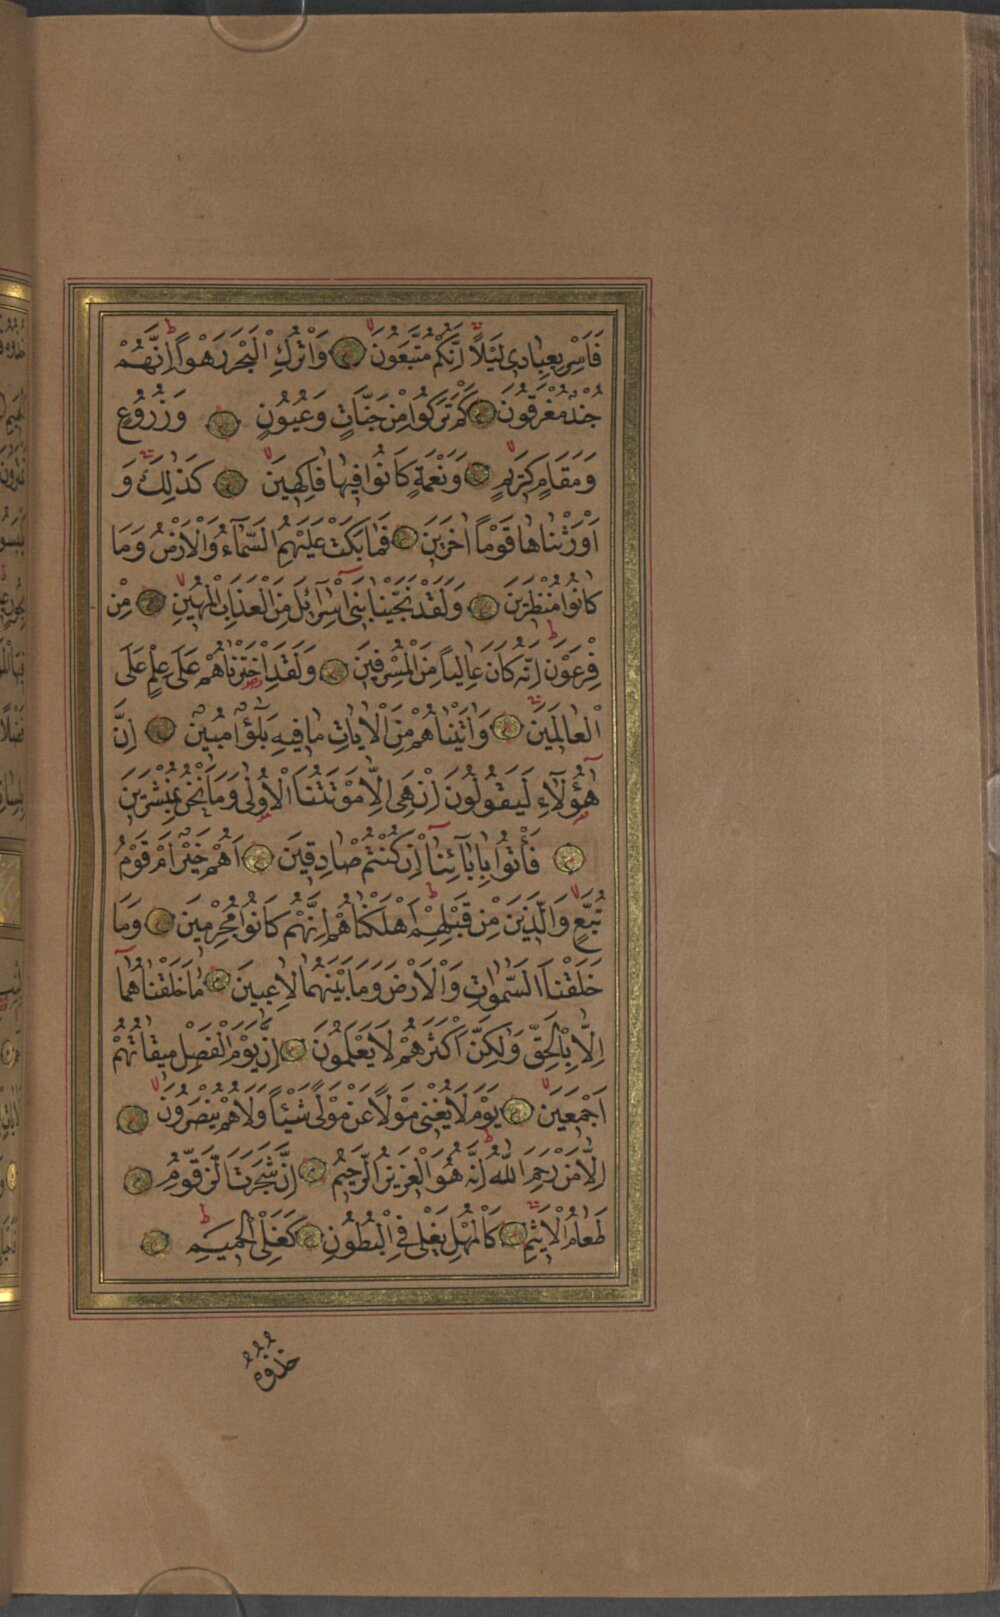 فَاَسْرِ بِعِبَادِى لَيْلًا اِنَّكُمْ مُتَّبَعُونَ وَاتْرُكِ الْبَحْرَ رَهْوًا اِنَّهُمْ
جُنْدٌ مُغْرَقُونَ كَمْ تَرَكُوا مِنْ جَنَّاتٍ وَعُيُونٍ وَزُرُوعٍ
وَمَقَامٍ كَرِيمٍ وَنَعْمَةٍ كَانُوا فِيهَا فَاكِهِينَ كَذٰلِكَ وَ
اَوْرَثْنَاهَا قَوْمًا اٰخَرِينَ فَمَا بَكَتْ عَلَيْهِمُ السَّمَآءُ وَالْاَرْضُ وَمَا
كَانُوا مُنْظَرِينَ وَلَقَدْ نَجَّيْنَا بَنِىٓ اِسْرَآئِلَ مِنَ الْعَذَابِ الْمُهِينِ مِنْ
فِرْعَوْنَ اِنَّهُ كَانَ عَالِيًا مِنَ الْمُسْرِفِينَ وَلَقَدِ اخْتَرْنَاهُمْ عَلٰى عِلْمٍ عَلَى
الْعَالَمِينَ وَاٰتَيْنَاهُمْ مِنَ الْاٰيَاتِ مَا فِيهِ بَلٰٓؤٌا مُبِينٌ اِنَّ
هٰٓؤُلَآءِ لَيَقُولُونَ اِنْ هِىَ اِلَّا مَوْتَتُنَا الْاُولٰى وَمَا نَحْنُ بِمُنْشَرِينَ
فَأْتُوا بِاٰبَآئِنَآ اِنْ كُنْتُمْ صَادِقِينَ اَهُمْ خَيْرٌ اَمْ قَوْمُ
تُبَّعٍ وَالَّذِينَ مِنْ قَبْلِهِمْ اَهْلَكْنَاهُمْ اِنَّهُمْ كَانُوا مُجْرِمِينَ وَمَا
خَلَقْنَا السَّمٰوَاتِ وَالْاَرْضَ وَمَا بَيْنَهُمَا لَاعِبِينَ مَا خَلَقْنَاهُمَآ
اِلَّا بِالْحَقِّ وَلٰكِنَّ اَكْثَرَهُمْ لَا يَعْلَمُونَ اِنَّ يَوْمَ الْفَصْلِ مِيقَاتُهُمْ
اَجْمَعِينَ يَوْمَ لَا يُغْنِى مَوْلًا عَنْ مَوْلًى شَيْئًا وَلَا هُمْ يُنْصَرُونَ
اِلَّا مَنْ رَحِمَ اللّٰهُ اِنَّهُ هُوَ الْعَزِيزُ الرَّحِيمُ اِنَّ شَجَرَتَ الزَّقُّومِ
طَعَامُ الْاَثِيمِ كَالْمُهْلِ يَغْلِى فِى الْبُطُونِ كَغَلْىِ الْحَمِيمِ
خُذُوهُ